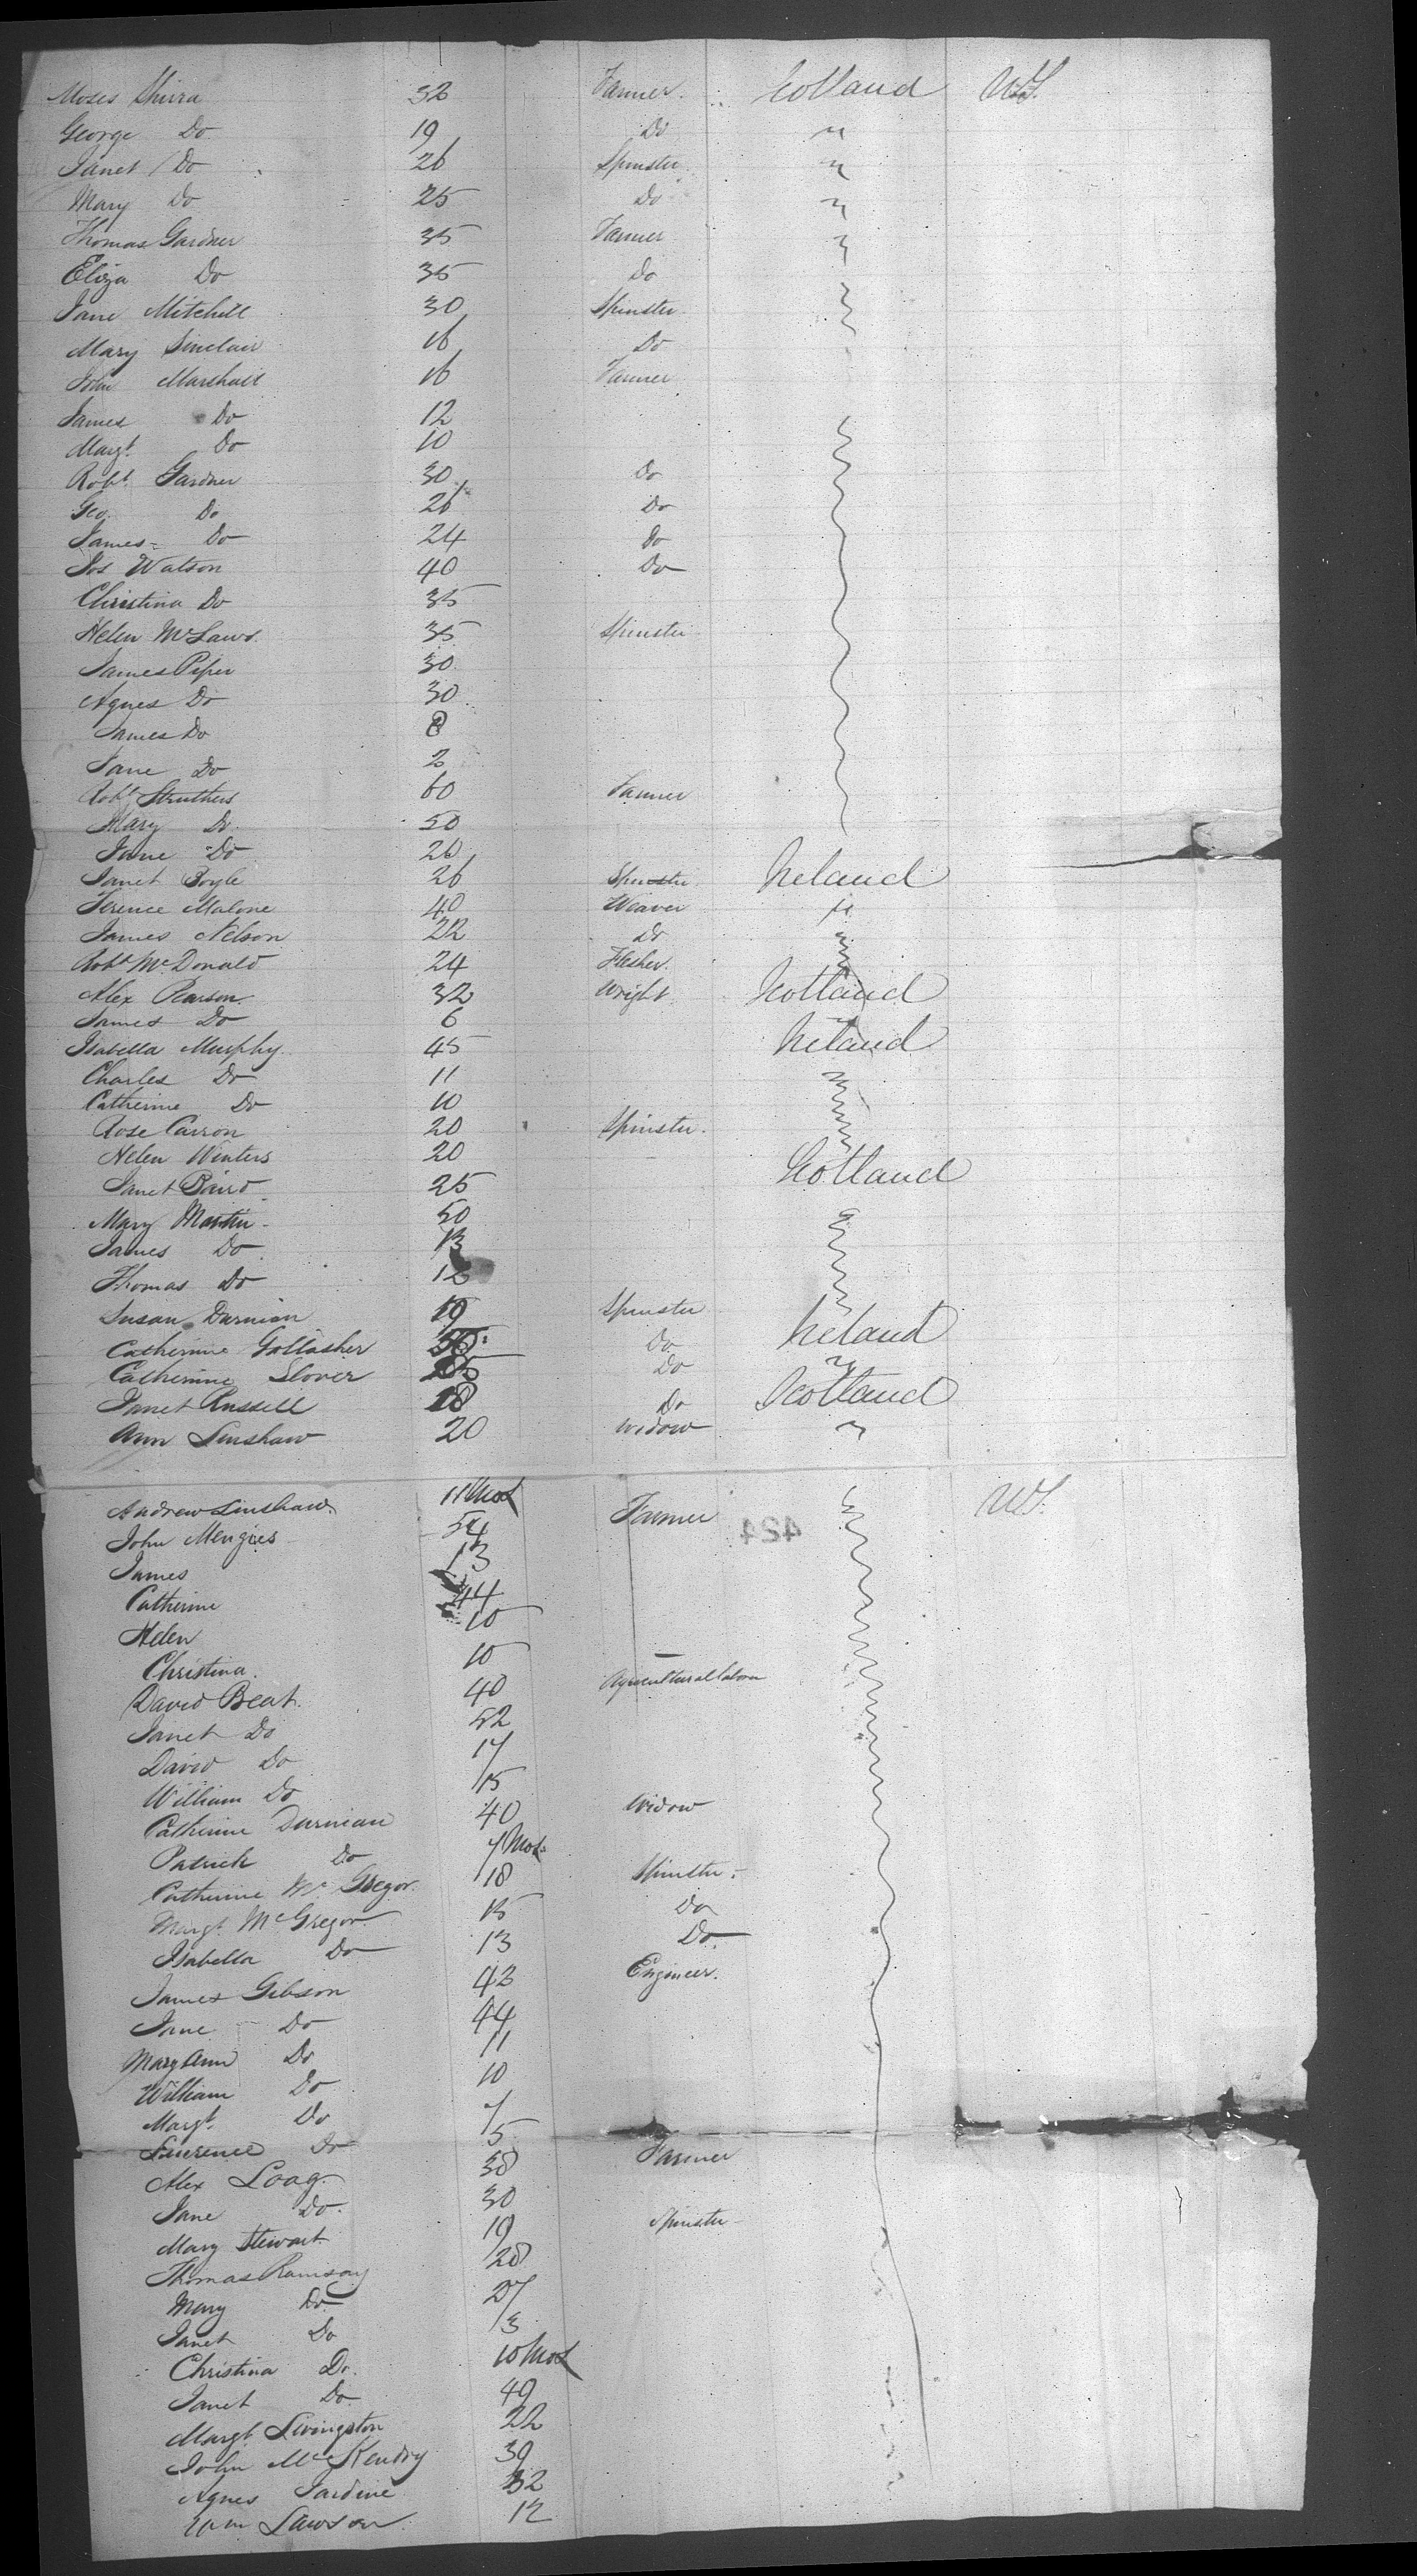 Moses Shirra 32 Farmer. Scotland U.S.
George Do 19 Do "
Janet Do 26 Spinster "
Mary Do 25 Do "
Thomas Gardner 35 Farmer "
Eliza Do 35 Do
Jane Mitchell 30 Spinster
Mary Sinclair 16 Do
John Marshall 16 Farmer
James Do 12
Margt. Do 10
Robt. Gardner 30 Do
Geo. Do 26 Do
James Do 24 Do
Jos Watson 40 Do
Christina Do 35
Helen McLaws. 35 Spinster
James Piper 30
Agnes Do 30
James Do 8
Jane Do 2
Robt. Struthers 60 Farmer
Mary Do. 50
Jane Do 26
Janet Boyle 26 Spinster Ireland
Terence Malone 40 Weaver "
James Nelson 22 Do
Robt McDonald 24 Flesher.
Alex Pearson. 32 Wright Scotland
James Do 6
Isabella Murphy. 45 Ireland
Charles Do 11
Catherine Do 10
Rose Carron 20 Spinster.
Helen Winters 20 Scotland
Janet Baird 25
Mary Martin 50
James Do 13
Thomas Do 12
Susan Durnian 19 Spinster Ireland
Catherine Gallagher Do
Catherine Slover Do "
Janet Russell 18 Do Scotland
Ann Linshaw 20 Widow "
Andrew Linshaw. 11 Mos U.S.
John Menzies 54 Farmer
424
James 13
Catherine 44
Helen 10
Christina. 10
David Beat. 40 Agricultural labor
Janet Do 52
David Do 17
William Do 15
Catherine Durnian 40 Widow
Patrick Do 7 Mos
Catherine Mc Gregor. 18 Spinster
Margt. McGregor 15 Do
Isabella Do 13 Do
James Gibson 43 Engineer.
Jane Do 44
Mary Ann Do 11
William Do 10
Margt. Do 7
Laurence Do 5
Alex Loag. 38 Farmer
Jane Do. 30
Mary Stewart. 19 Spinster
Thomas Ramsay 28
Mary Do 27
Janet Do 3
Christina Do. 10 Mos
Janet Do 49
Margt. Livingston 22
John McKendry 39
Agnes Jardine 32
Wm Lawson 12